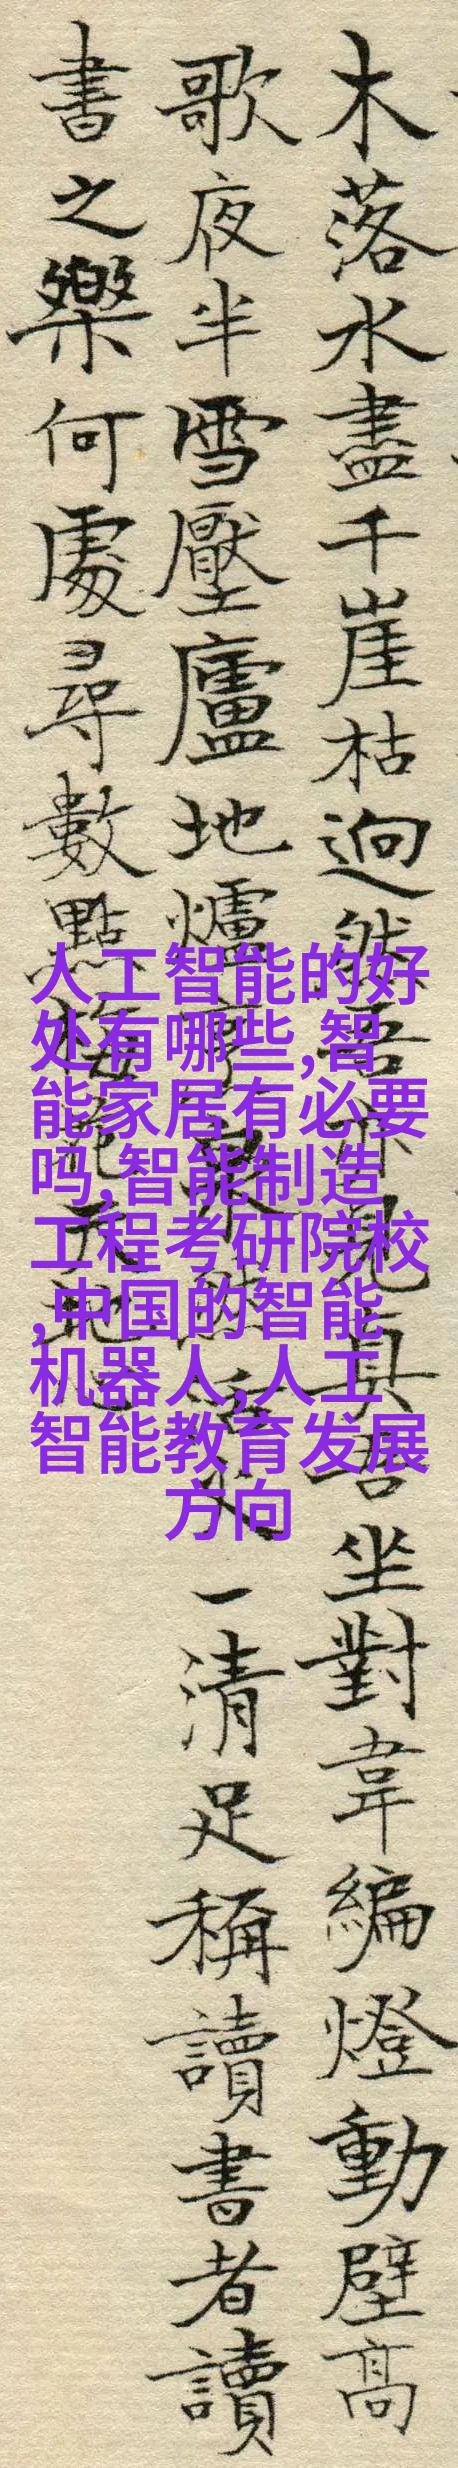 木落水盡千崖枯迥然吾亦見真吾坐對韋編燈動壁高
歌夜半雪壓廬地爐活火一清足稱讀書者讀
書之樂何處尋數點梅花天地心
人工智能的好
处有哪些,智
能家居有必要
吗,智能制造
工程考研院校
,中国的智能
机器人,人工
智能教育发展
方向